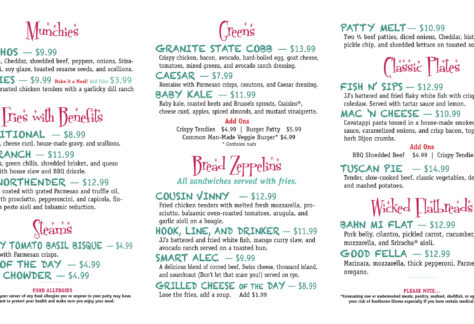 Munchies
HOS — $9.99
, Cheddar, shredded beef, peppers, onions, Srira-
, soy glaze, toasted sesame seeds, and scallions.
IES — $9.99 Make it a Meal! Add fries $3.99
rusted chicken tenders with a garlicky dill ranch
Fries with Benefits
ITIONAL — $8.99
, cheese curd, house-made gravy, and scallions.
RANCH — $11.99
s, green chilis, shredded brisket, and queso
with house slaw and BBQ drizzle.
NORTHENDER — $12.99
coated with grated Parmesan and truffle oil,
with prosciutto, pepperoncini, and capicola, fin-
pesto aioli and balsamic reduction.
Steams
Y TOMATO BASIL BISQUE — $4.99
with Parmesan crisps.
OF THE DAY — $4.99
CHOWDER — $4.99
FOOD ALLERGIES
your server of any food allergies you or anyone in your party may have.
ant to protect your health and make sure you enjoy your meal.
Greens
GRANITE STATE COBB — $13.99
Crispy chicken, bacon, avocado, hard-boiled egg, goat cheese,
tomatoes, mixed greens, and avocado ranch dressing.
CAESAR — $7.99
Romaine with Parmesan crisps, croutons, and Caesar dressing.
BABY KALE — $11.99
Baby kale, roasted beets and Brussels sprouts, Craisins®,
cheese curd, apples, spiced almonds, and mustard vinaigrette.
Add Ons
Crispy Tendies $4.99 | Burger Patty $5.99
Common Man-Made Veggie Burger* $4.99
* Contains nuts
Bread Zeppelins
All sandwiches served with fries.
COUSIN VINNY — $12.99
Fried chicken tenders with melted fresh mozzarella, pro-
sciutto, balsamic oven-roasted tomatoes, arugula, and
garlic aioli on a hoagie.
HOOK, LINE, AND DRINKER — $11.99
JJ's battered and fried white fish, mango curry slaw, and
avocado ranch served on a toasted bun.
SMART ALEC — $9.99
A delicious blend of corned beef, Swiss cheese, thousand island,
and sauerkraut (Don't let that scare you!) served on rye.
GRILLED CHEESE OF THE DAY — $8.99
Lose the fries, add a soup. Add $1.99
PATTY MELT — $10.99
Two ¼ beef patties, diced onions, Cheddar,
pickle chip, and shredded lettuce on toasted
Classic Plates
FISH N' SIPS — $12.99
JJ's battered and fried flaky white fish with crisp
coleslaw. Served with tartar sauce and lemon.
MAC 'N CHEESE — $10.99
Cavatappi pasta tossed in a house-made smoked
sauce, caramelized onions, and crisp bacon, top
herb Dijon crumbs.
Add Ons
BBQ Shredded Beef $4.99 | Crispy Tender
TUSCAN PIE — $14.99
Tender, slow-cooked beef, classic vegetables, de
and mashed potatoes.
Wicked Flatbreads
BAHN MI FLAT — $12.99
Pork belly, cilantro, pickled carrot, cucumber,
mozzarella, and Sriracha® aioli.
GOOD FELLA — $12.99
Marinara, mozzarella, thick pepperoni, Parme
oregano.
PLEASE NOTE...
*Consuming raw or undercooked meats, poultry, seafood, shellfish, or eg
your risk of foodborne illness especially if you have certain medical